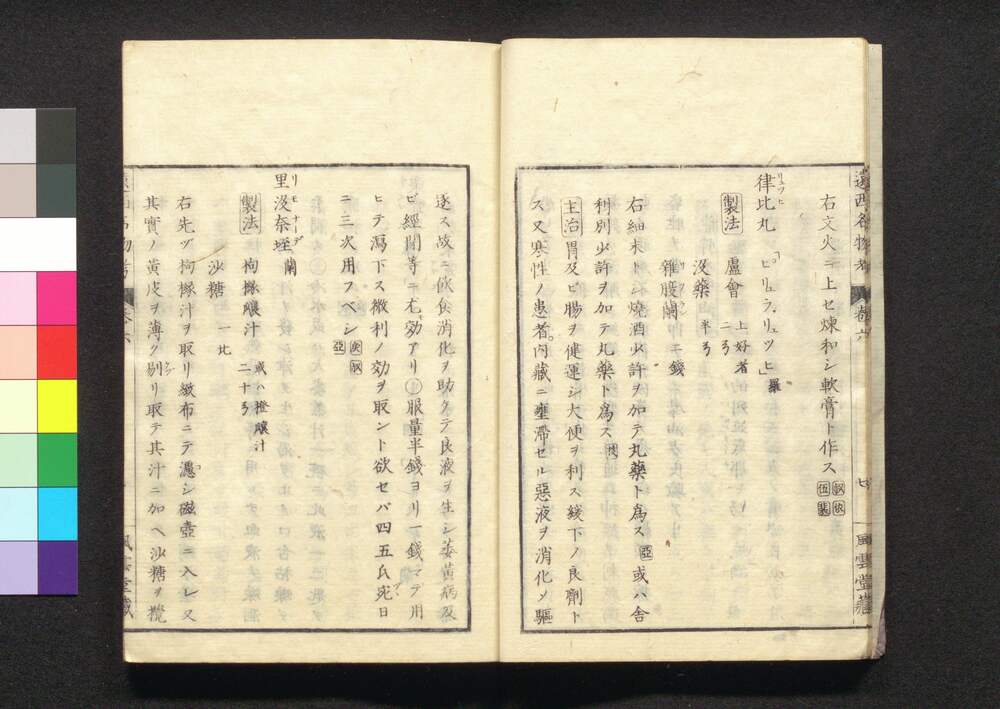 遠西名物考 卷六 七 風雲堂藏
右文火ニ上セ煉和シ軟膏ト作ス
律比丸 「ピリュラ、リュッヒ」羅
リュッヒ
製法 蘆會 上好者 二弓
沒藥 半弓
雜腹蘭 二錢
右細末トシ燒酒少許ヲ加テ丸藥ト爲ス 亞 或ハ舍
利別少許ヲ加テ丸藥ト爲ス
主治 胃及ビ腸ヲ健運シ大便ヲ利ス緩下ノ良劑ト
ス又寒性ノ患者内藏ニ壅滯セル惡液ヲ消化ソ驅
逐ス故ニ飲食消化ヲ助ケテ良液ヲ生シ萎黃病及
ビ經閉等ニ尤効アリ 服量半錢ヨリ一錢マデ用
ヒテ瀉下ス微利ノ効ヲ取ント欲セバ四五氐宛日
ニ二三次用フベシ 亞
里沒奈垤 蘭
リモナーデ
製法 枸櫞瓤汁 或ハ橙瓤汁 二十弓
沙糖 一比
右先ヅ枸櫞汁ヲ取リ緻布ニテ濾シ磁壺ニ入レ又
其實ノ黃皮ヲ薄ク剔リ取テ其汁ニ加ヘ沙糖ヲ攪